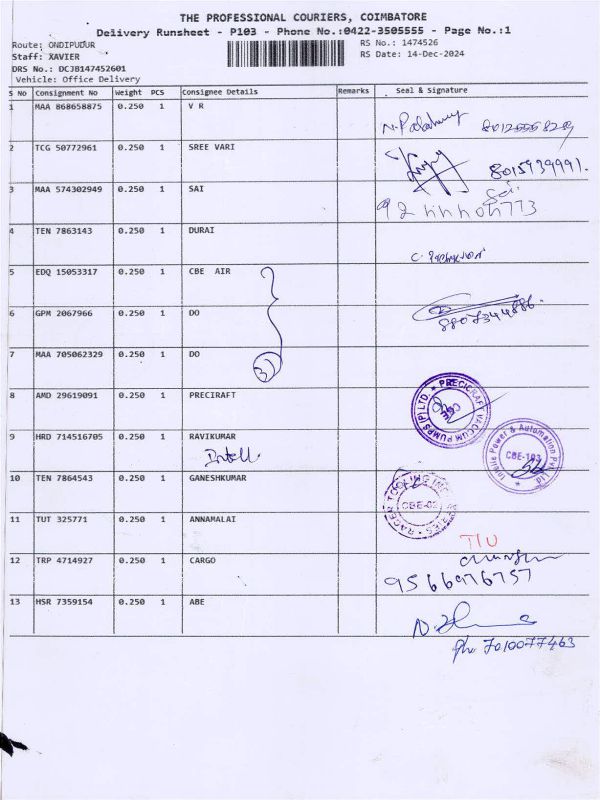 THE PROFESSIONAL COURIERS, COIMBATORE
Delivery Runsheet - P103 - Phone No.:0422-3505555 - Page No.:1
Route: ONDIPUDUR RS No.: 1474526
Staff: XAVIER RS Date: 14-Dec-2024
DRS No.: DCJB147452601
Vehicle: Office Delivery
S No Consignment No Weight PCS Consignee Details Remarks Seal & Signature
1 MAA 868658875 0.250 1 V R
2 TCG 50772961 0.250 1 SREE VARI
8015939991.
3 MAA 574302949 0.250 1 SAI
Sai
4 TEN 7863143 0.250 1 DURAI
5 EDQ 15053317 0.250 1 CBE AIR
6 GPM 2067966 0.250 1 DO
8807344886.
7 MAA 705062329 0.250 1 DO
3
8 AMD 29619091 0.250 1 PRECIRAFT
PRECICRAFT VACCUM PUMPS (P) LTD.
9 HRD 714516705 0.250 1 RAVIKUMAR
Power & Automation Pvt. Ltd.
CBE-103
10 TEN 7864543 0.250 1 GANESHKUMAR
RACER TOOLING
CBE-02
11 TUT 325771 0.250 1 ANNAMALAI
12 TRP 4714927 0.250 1 CARGO
9566976757
13 HSR 7359154 0.250 1 ABE
Ph. 7010077463